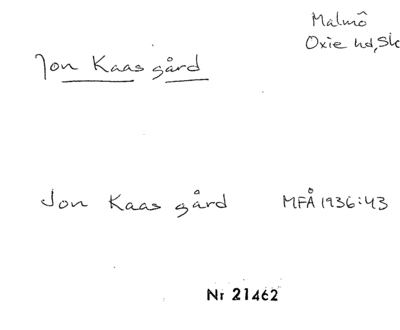 Malmö
Oxie hd, Sk
Jon Kaas gård
Jon Kaas gård MFÅ 1936:43
Nr 21462